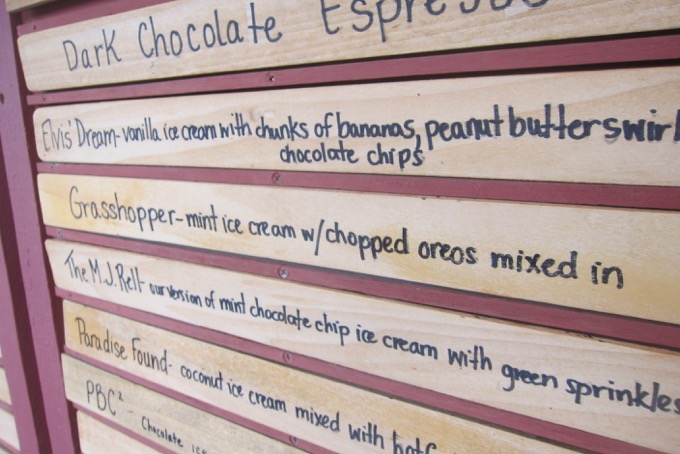 Dark Chocolate Espresso
Elvis' Dream-vanilla ice cream with chunks of bananas, peanut butter swirl
chocolate chips
Grasshopper-mint ice cream w/chopped oreos mixed in
The M.J. Relt- our version of mint chocolate chip ice cream with green sprinkles
Paradise Found- coconut ice cream mixed with
PBC² - Chocolate ice